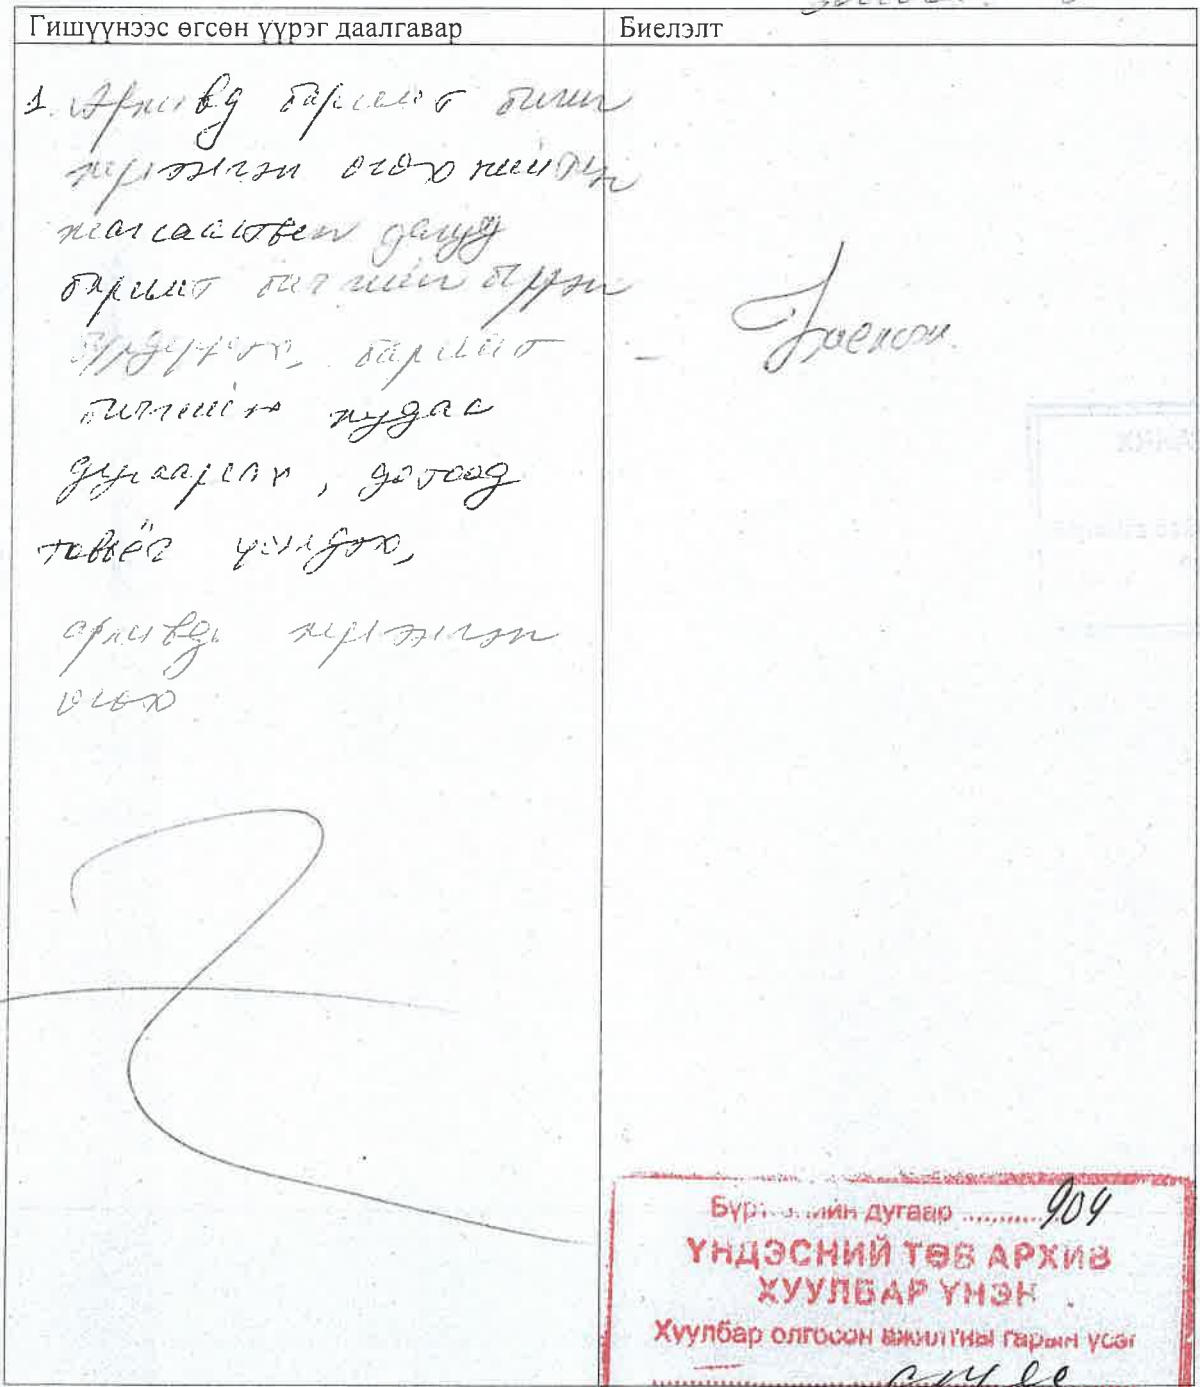 Гишүүнээс өгсөн үүрэг даалгавар
Биелэлт
1. Архивд баримт бичиг
хүлээлгэн өгөх нийтэн
жагсаалтвен дагуу
баримт бичгийн бүрэн
бүрдүүлэх, баримт
бичгийн хуудас
дугаарлах, дотоод
товъёг үйлдэх,
архивд хүлээлгэн
өгөх
Биелсэн.
Бүртгэлийн дугаар .......... 904
ҮНДЭСНИЙ ТӨВ АРХИВ
ХУУЛБАР ҮНЭН
Хуулбар олгосон ажилтны гарын үсэг